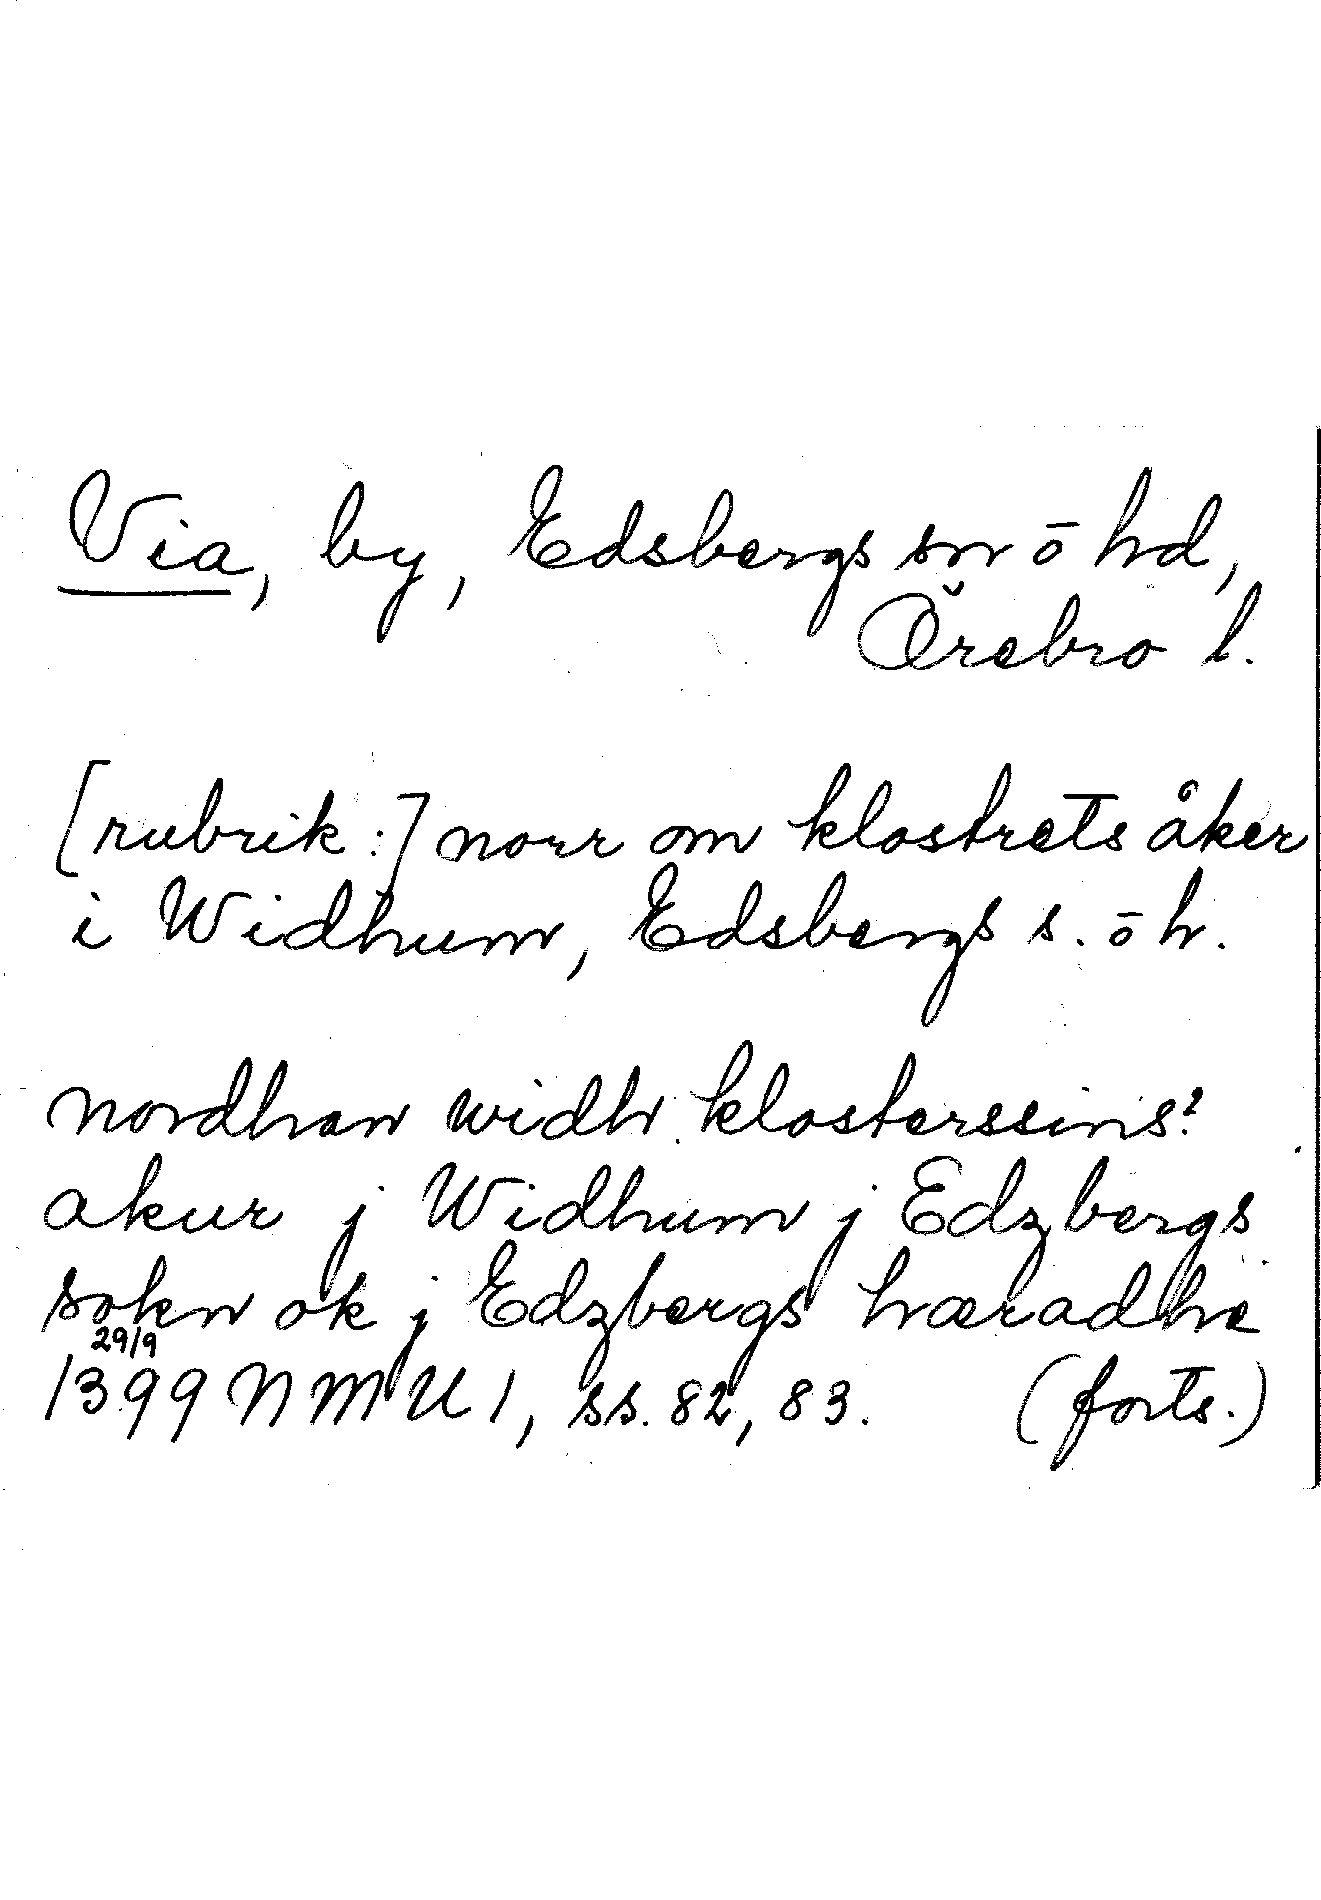 Via, by, Edsbergs sn ō hd,
Örebro l.
[rubrik:] norr om klostrets åker
i Widhum, Edsbergs s. ō h.
nordhan widh klosterssins?
akur j Widhum j Edzbergs
sokn ok j Edzbergs hæradhe
29/9
1399 NMU 1, ss. 82, 83. (forts.)